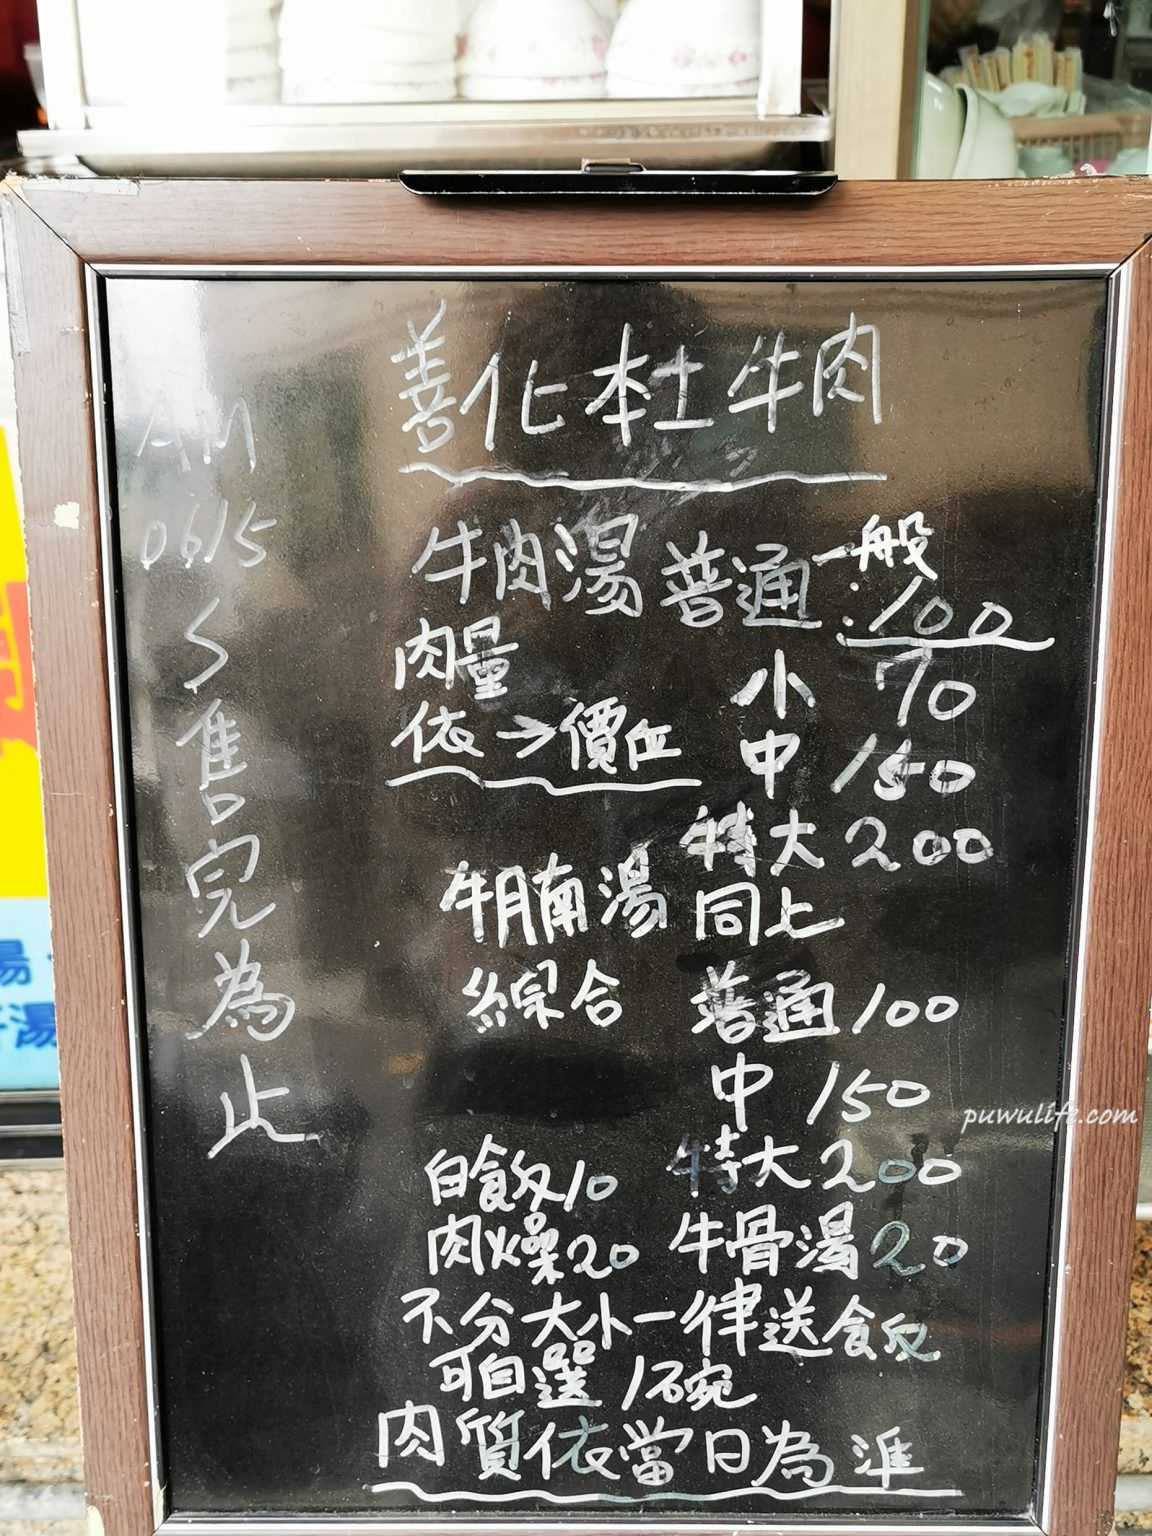 善化本土牛肉
AM
0615
〜
售
完
為
止
牛肉湯 普通 一般
100
肉量 小 70
依→價位 中 150
特大 200
牛腩湯 同上
綜合 普通 100
中 150
特大 200
白飯10
肉燥20 牛骨湯20
不分大小一律送飯
可自選 1碗
肉質依當日為準
puwulife.com
湯
湯